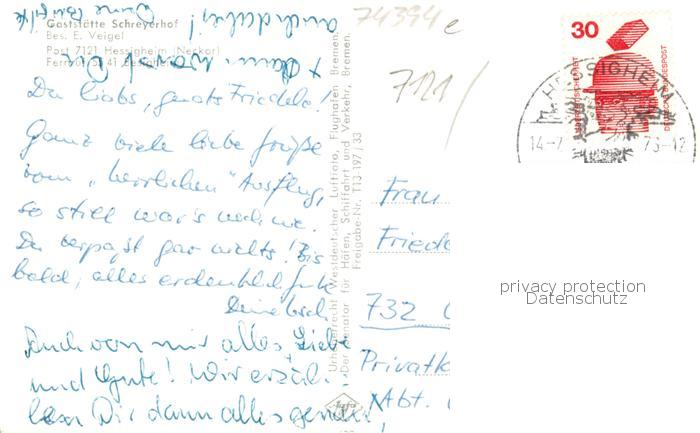 Gaststätte Schreyerhof
Bes. E. Veigel
Post 7121 Hessigheim (Neckar)
auch dabei!
74394 e
7121/
Ganz viele liebe Grüße
vom "herrlichen" Ausflug,
so still war's noch nie.
Du verpaßt gar nichts! Bis
bald, alles erdenklich Gute
Deine
Auch von mir alles Liebe
und Gute! Wir erzäh-
len Dir dann alles genau,
Urheberrecht Westdeutscher Luftfoto, Flughafen Bremen.
Der Senator für Häfen, Schiffahrt und Verkehr, Bremen.
Freigabe-Nr. T13-197/33
30
DEUTSCHE BUNDESPOST
HESSIGHEIM
Frau
732
Abt.
privacy protection
Datenschutz